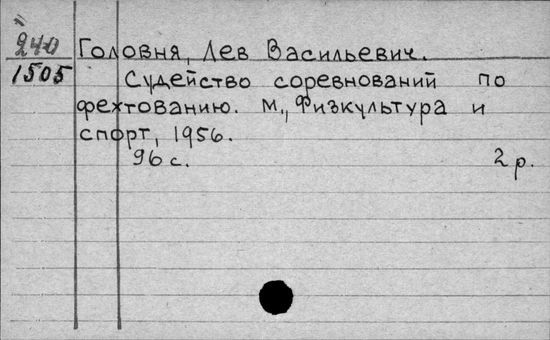 240 Головня, Лев Васильевич.
1505 Судейство соревнований по
фехтованию. М., „Физкультура и
спорт, 1956.
96 с. 2 р.